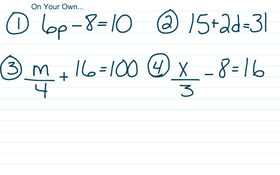 On Your Own...
① 6p - 8 = 10 ② 15 + 2d = 31
③ m/4 + 16 = 100 ④ x/3 - 8 = 16